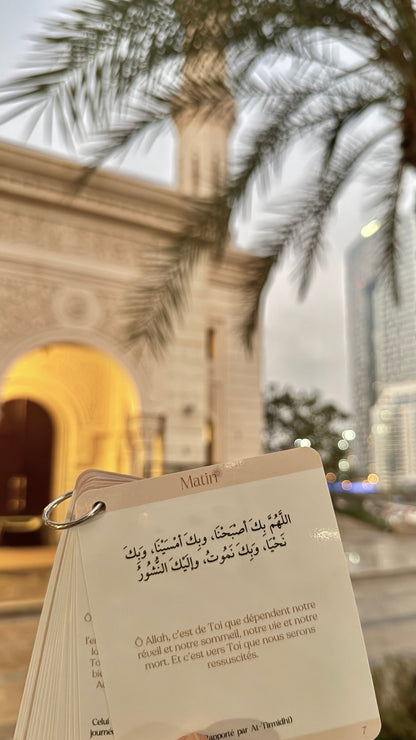 Matin
اللَّهُمَّ بِكَ أَصْبَحْنَا، وبِكَ أَمْسَيْنَا، وَبِكَ
نَحْيَا، وَبِكَ نَمُوتُ، وإِلَيْكَ النُّشُورُ
Ô Allah, c'est de Toi que dépendent notre
réveil et notre sommeil, notre vie et notre
mort. Et c'est vers Toi que nous serons
ressuscités.
Rapporté par At-Tirmidhi)
7
Ô
Celui
journé